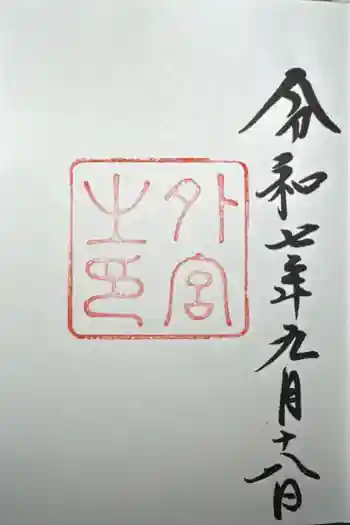 令和七年九月十八日
外宮
之印